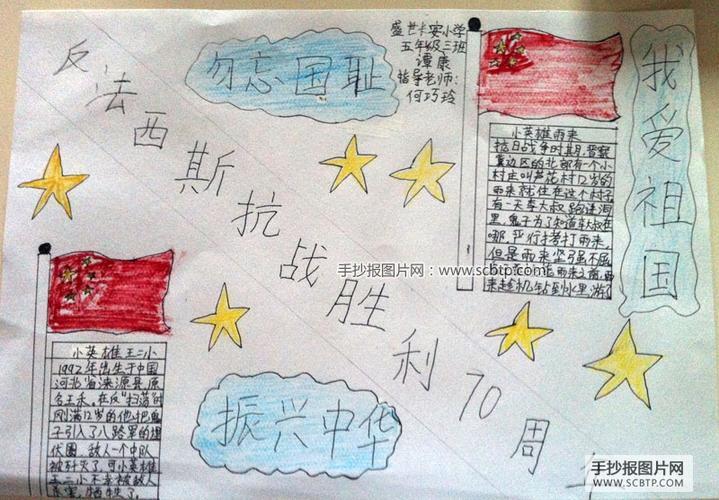 反法西斯抗战胜利70周
勿忘国耻
盛世卡安小学
五年级三班
谭康
指导老师:
何巧玲
我爱祖国
小英雄雨来
抗日战争时期,晋察
冀边区的北部有一个小
村庄叫芦花村12岁的
雨来就住在这个村子
有一天李大叔跑进洞
里,鬼子为了知道李大叔在
哪,严行拷打雨来,
但是雨来坚强不屈
雨来之前,雨
来趁机钻到水里,游了
手抄报图片网:www.scbtp.com
小英雄王二小
1992年出生于中国
河北省涞源县,原
名王禾。在反"扫荡"时
刚满12岁的他把鬼
子引入了八路军的埋
伏圈,敌人一个中队
被歼灭了,可小英雄
王二小不幸被敌人
杀害,牺牲了。
振兴中华
手抄报图片网
WWW.SCBTP.COM